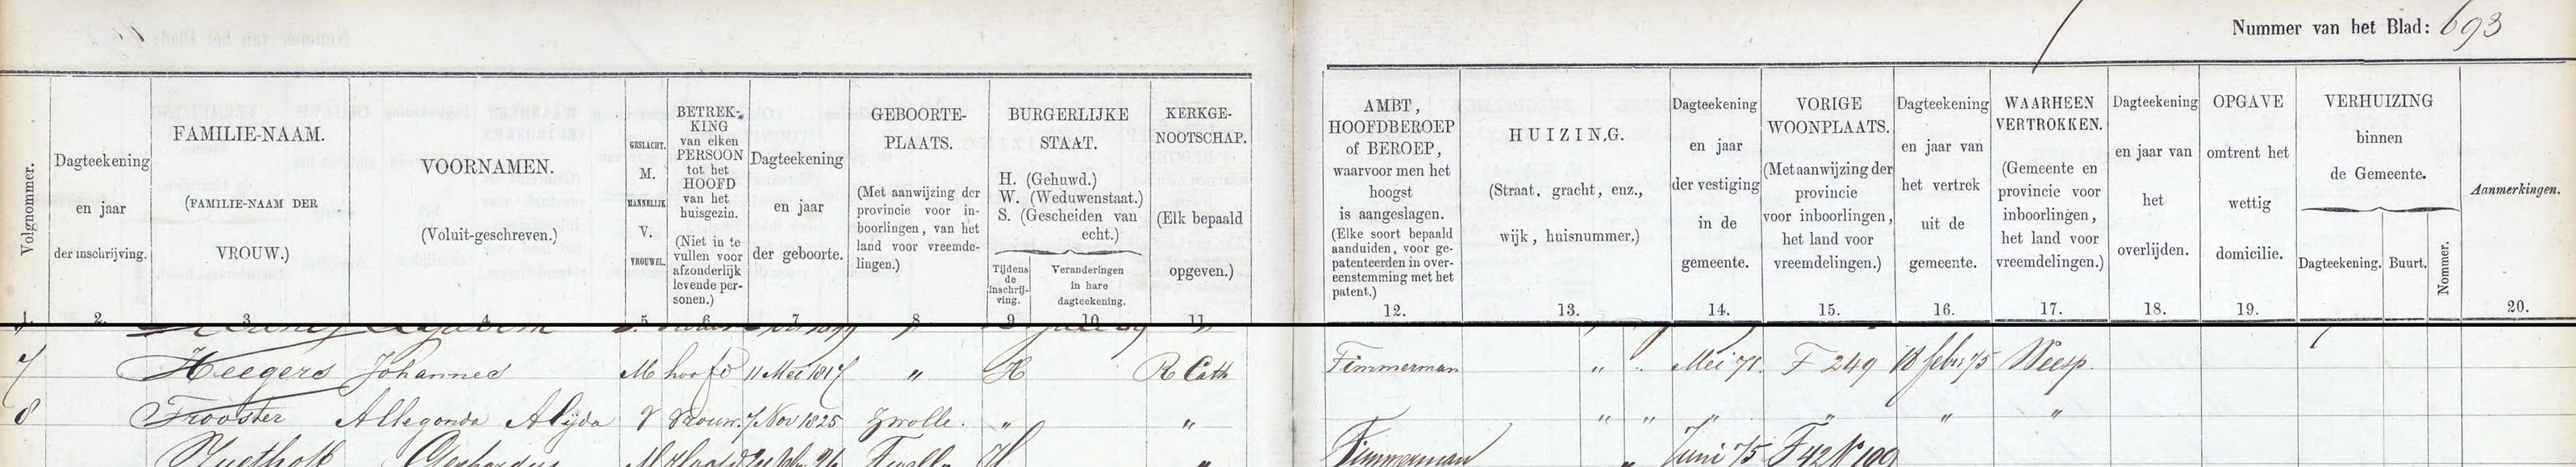 Nummer van het Blad: 693
Volgnommer.
1.
Dagteekening
en jaar
der inschrijving.
2.
FAMILIE-NAAM.
(FAMILIE-NAAM DER
VROUW.)
3.
VOORNAMEN.
(Voluit-geschreven.)
4.
GESLACHT.
M.
MANNELIJK
V.
VROUWEL.
5.
BETREK-
KING
van elken
PERSOON
tot het
HOOFD
van het
huisgezin.
(Niet in te
vullen voor
afzonderlijk
levende per-
sonen.)
6.
Dagteekening
en jaar
der geboorte.
7.
GEBOORTE-
PLAATS.
(Met aanwijzing der
provincie voor in-
boorlingen, van het
land voor vreemde-
lingen.)
8.
BURGERLIJKE
STAAT.
H. (Gehuwd.)
W. (Weduwenstaat.)
S. (Gescheiden van
echt.)
Tijdens
de
inschrij-
ving.
9.
Veranderingen
in hare
dagteekening.
10.
KERKGE-
NOOTSCHAP.
(Elk bepaald
opgeven.)
11.
AMBT,
HOOFDBEROEP
of BEROEP,
waarvoor men het
hoogst
is aangeslagen.
(Elke soort bepaald
aanduiden, voor ge-
patenteerden in over-
eenstemming met het
patent.)
12.
HUIZING.
(Straat, gracht, enz.,
wijk, huisnummer.)
13.
Dagteekening
en jaar
der vestiging
in de
gemeente.
14.
VORIGE
WOONPLAATS.
(Met aanwijzing der
provincie
voor inboorlingen,
het land voor
vreemdelingen.)
15.
Dagteekening
en jaar van
het vertrek
uit de
gemeente.
16.
WAARHEEN
VERTROKKEN.
(Gemeente en
provincie voor
inboorlingen,
het land voor
vreemdelingen.)
17.
Dagteekening
en jaar van
het
overlijden.
18.
OPGAVE
omtrent het
wettig
domicilie.
19.
VERHUIZING
binnen
de Gemeente.
Dagteekening.
Buurt.
Nommer.
Aanmerkingen.
20.
7 Heegers Johannes M hoofd 11 Mei 1817 " H R Cath Timmerman " " Mei 71. F 249 18 febr 75 Weesp.
8 Trooster Allegonda Alijda V Vrouw. 7 Nov 1825 Zwolle. " " " " " " " "
Gerhardus M Hoofd H " Timmerman " Juni 75 F 42 N 199